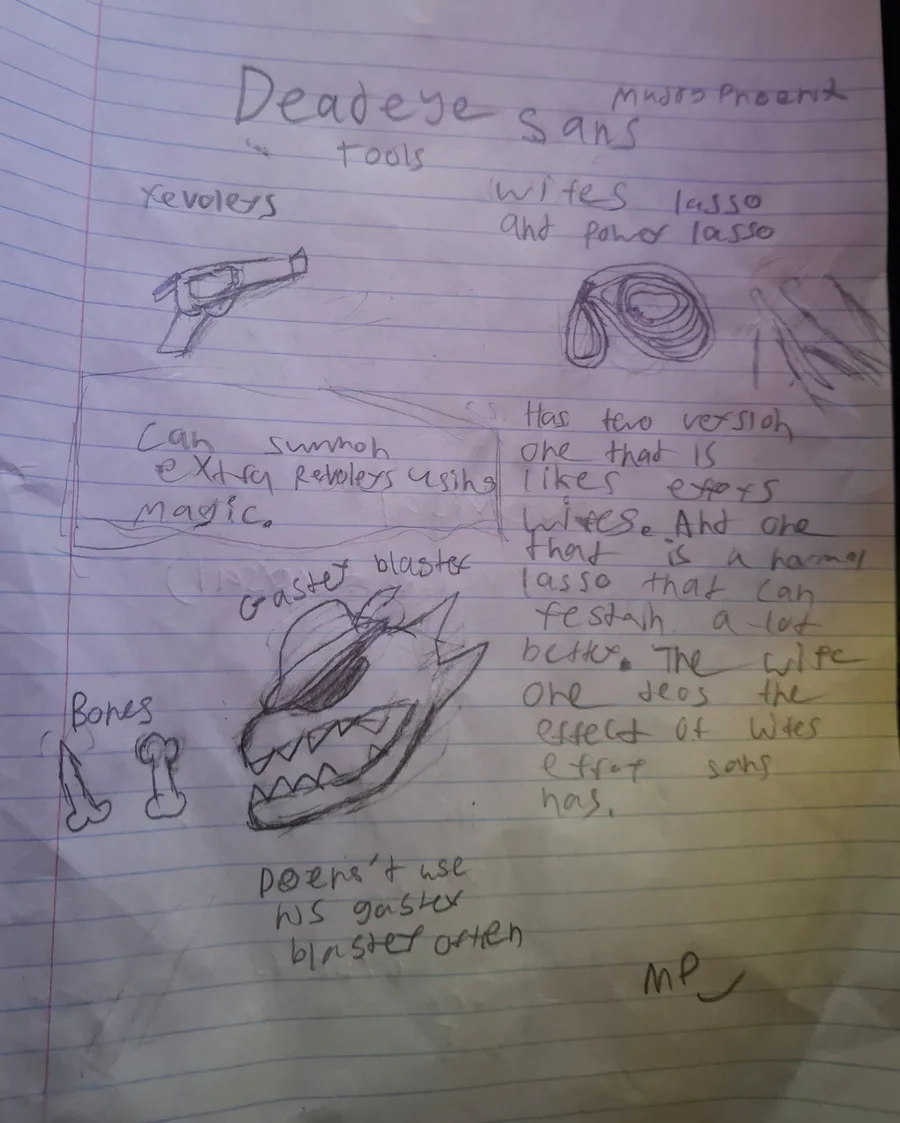 Deadeye sans
tools
revolers
wires lasso
and power lasso
Can summon
extra Revolers using
magic.
Has two version
one that is
likes errors
wires. And one
that is a normal
lasso that can
restain a lot
better. The wire
one deos the
effect of wires
error sans
has.
Gaster blaster
Bones
Doens't use
his gaster
blaster often
MP